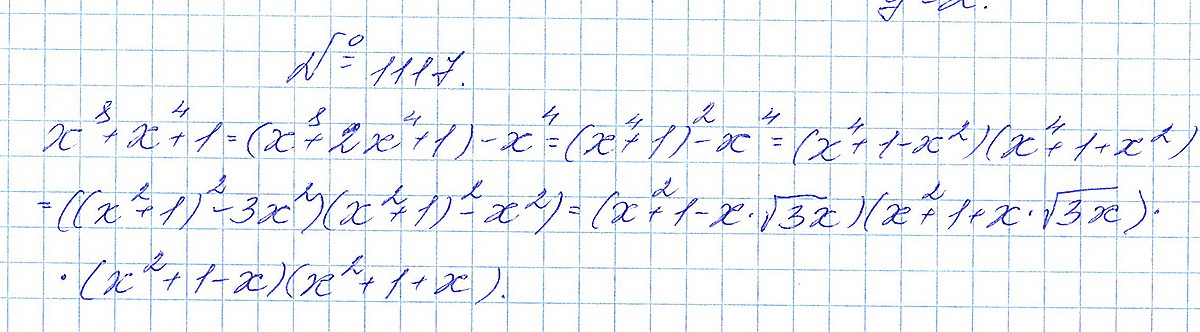 y = 2.
№ 1117.
x⁸ + x⁴ + 1 = (x⁸ + 2x⁴ + 1) - x⁴ = (x⁴ + 1)² - x⁴ = (x⁴ + 1 - x²)(x⁴ + 1 + x²)
= ((x² + 1)² - 3x²)(x² + 1)² - x²) = (x² + 1 - x · √3x)(x² + 1 + x · √3x) ·
· (x² + 1 - x)(x² + 1 + x).